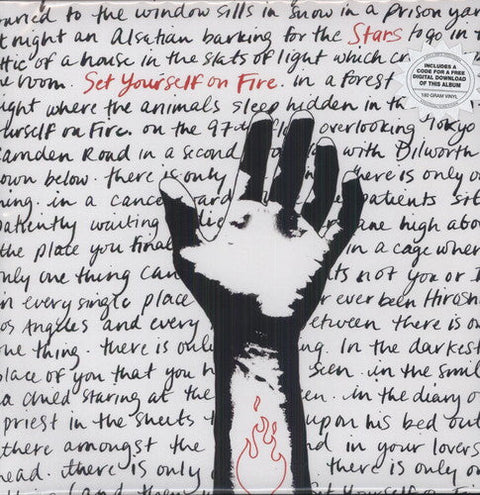 buried to the window sills in snow in a prison yar
at night an Alsatian barking for the Stars to go in t
attic of a house in the slats of light which
the room. Set Yourself on Fire. in a forest
night where the animals sleep hidden in
yourself on Fire. on the 97th overlooking Tokyo
Camden Road in a second with Dilworth
own below. there is only there is only o
hing. in a cance ward patients sit
patiently waiting die ane high abo
the place you final in a cage wher
only one thing can its not you or I
in every single place or ever been Hirosh
Los Angeles and every between there is on
one thing. there is only ng. In the darkest
place of you that you h seen. in the smile
a child staring at the en. in the diary o
priest in the sheets upon his bed out
there amongst the d in your lovers
head. there is only there is only o
INCLUDES A
CODE FOR A FREE
DIGITAL DOWNLOAD
OF THIS ALBUM
180 GRAM VINYL